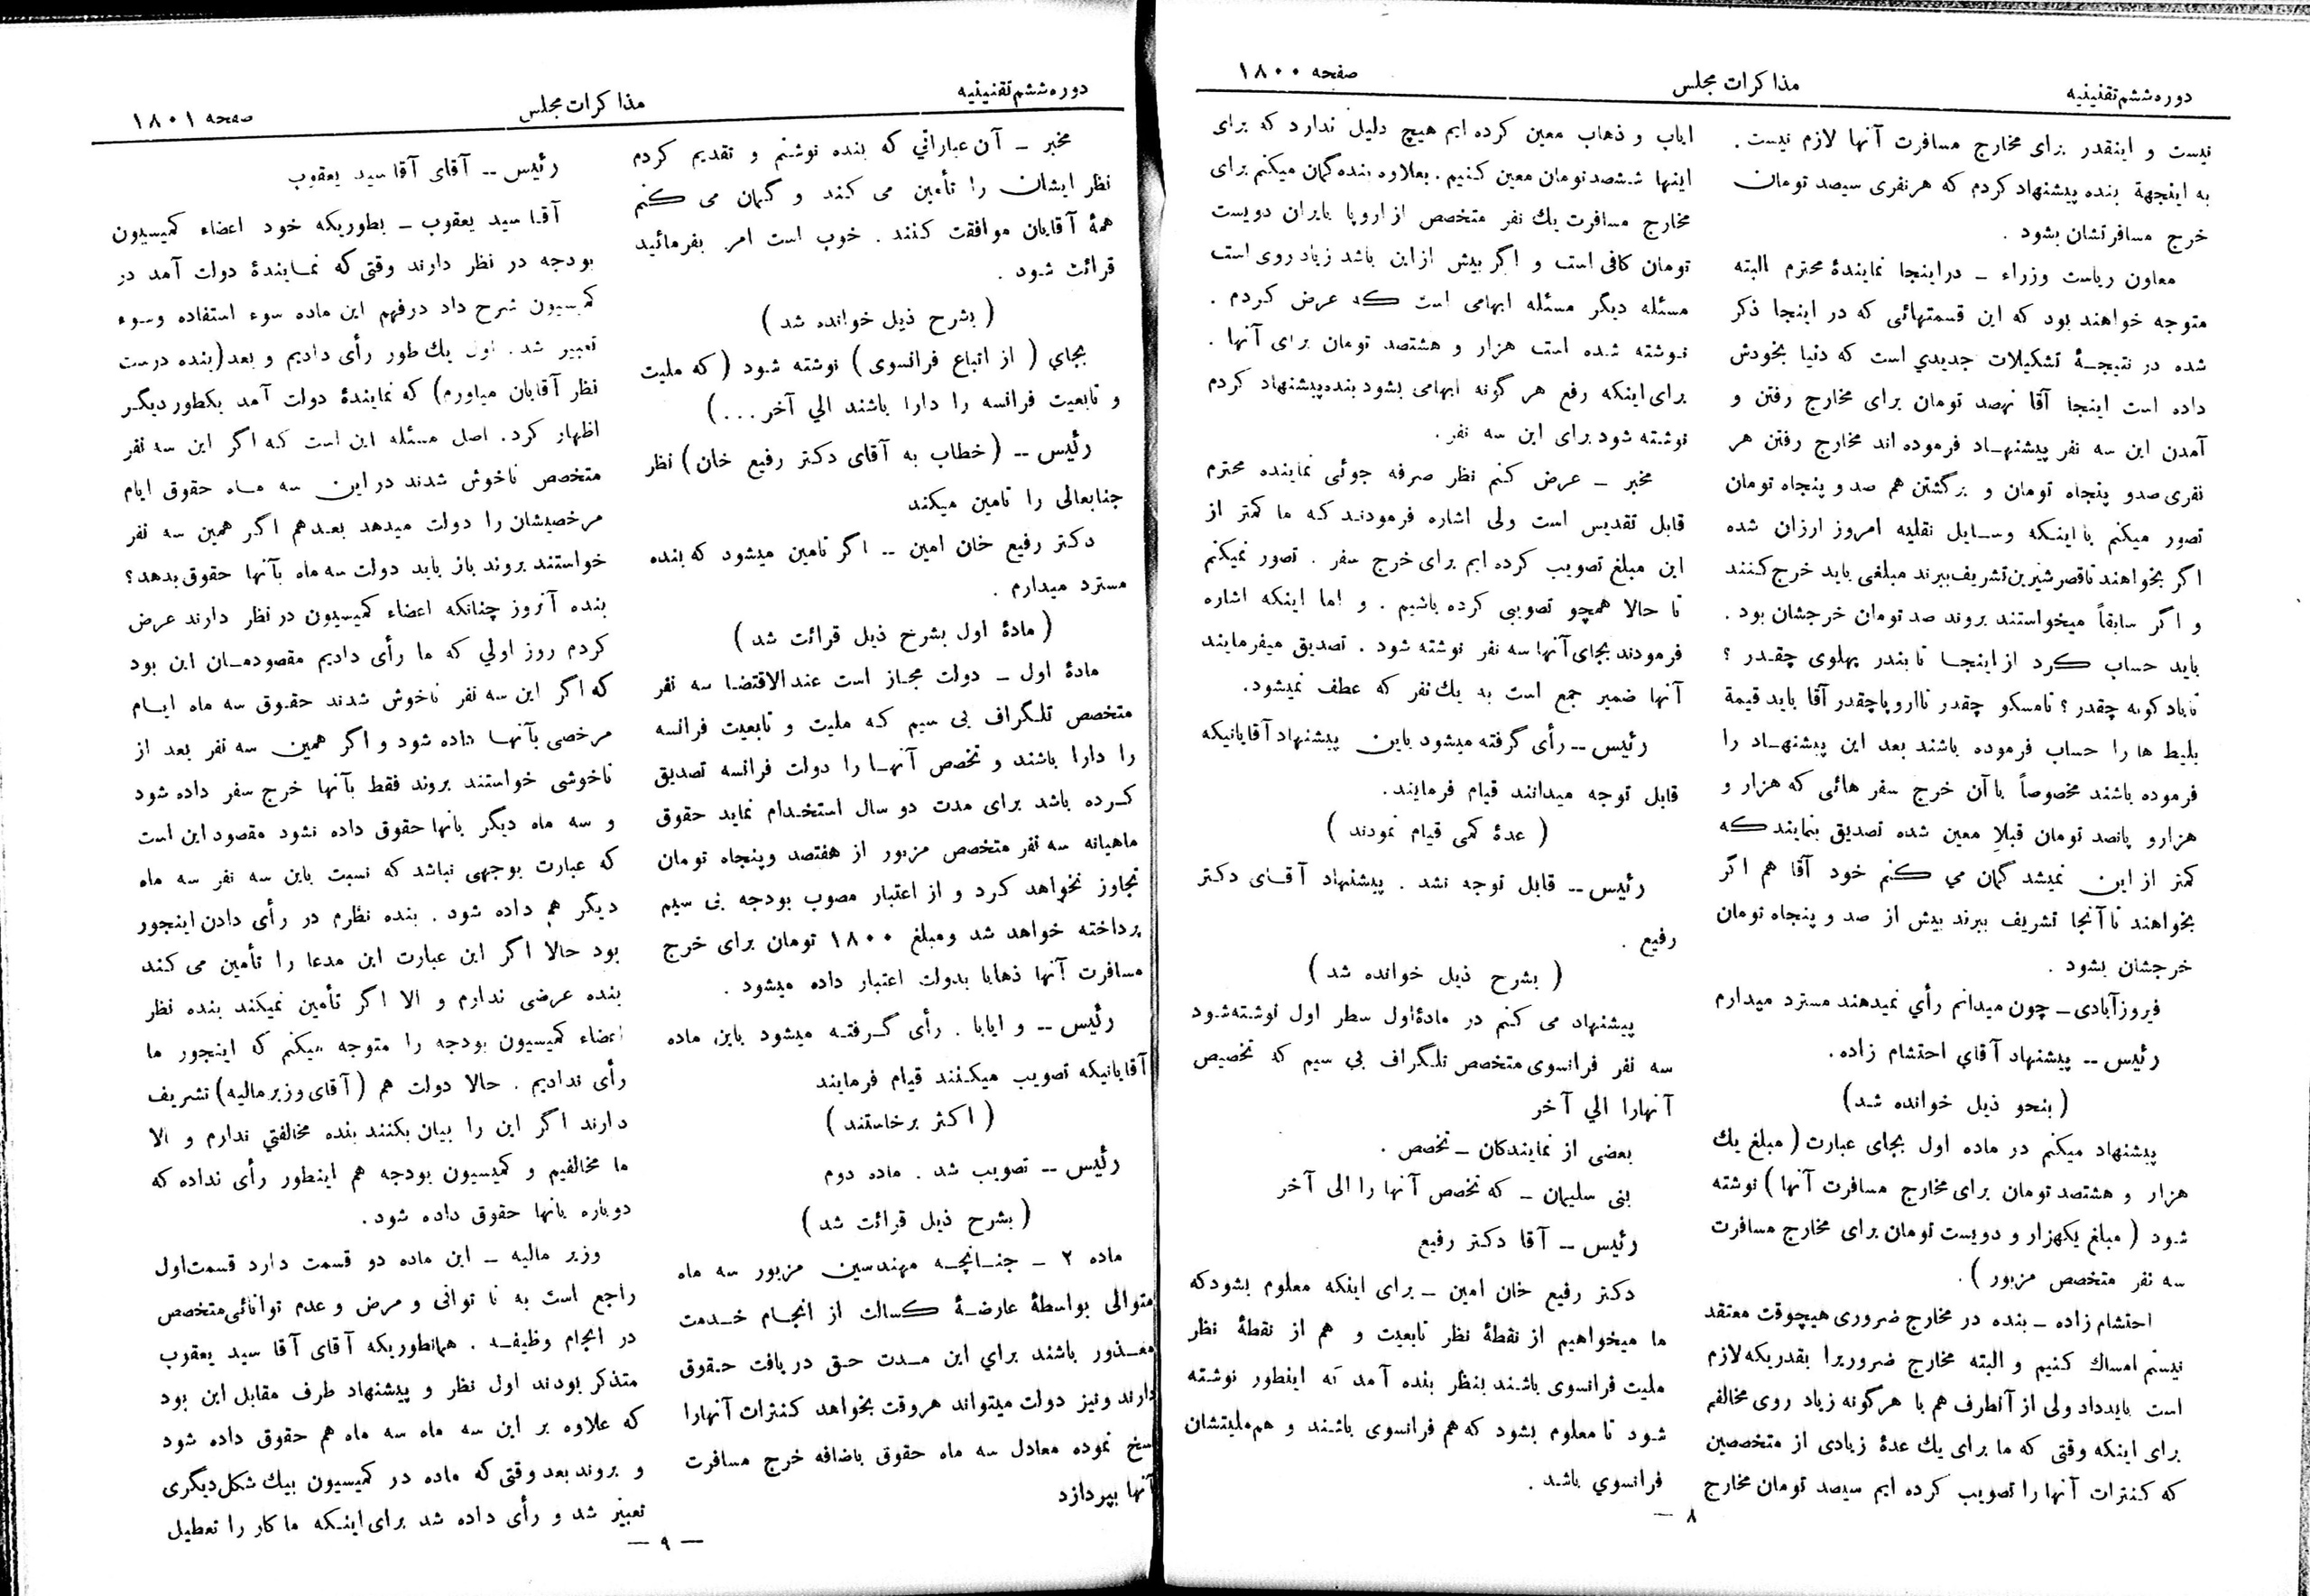 دوره ششم تقنینیه
مذاکرات مجلس
صفحه ۱۸۰۰
نیست و اینقدر برای مخارج مسافرت آنها لازم نیست .
به اینجهة بنده پیشنهاد کردم که هر نفری سیصد تومان
خرج مسافرتشان بشود .
معاون ریاست وزراء – در اینجا نمایندهٔ محترم البته
متوجه خواهند بود که این قسمتهائی که در اینجا ذکر
شده در نتیجهٔ تشکیلات جدیدي است که دنیا بخودش
داده است اینجا آقا نهصد تومان برای مخارج رفتن و
آمدن این سه نفر پیشنهاد فرموده اند مخارج رفتن هر
نفری صدو پنجاه تومان و برگشتن هم صد و پنجاه تومان
تصور میکنم با اینکه وسایل نقلیه امروز ارزان شده
اگر بخواهند تا قصر شیرین تشریف ببرند مبلغی باید خرج کنند
و اگر سابقاً میخواستند بروند صد تومان خرجشان بود .
باید حساب کرد از اینجا تا بندر پهلوی چقدر ؟
تا بادکوبه چقدر ؟ تا مسکو چقدر تا اروپا چقدر آقا باید قیمة
بلیط ها را حساب فرموده باشند بعد این پیشنهاد را
فرموده باشند مخصوصاً با آن خرج سفر هائی که هزار و
هزارو پانصد تومان قبلا معین شده تصدیق بنمایند که
کمتر از این نمیشد گمان می کنم خود آقا هم اگر
بخواهند تا آنجا تشریف ببرند بیش از صد و پنجاه تومان
خرجشان بشود .
فیروزآبادی – چون میدانم رأي نمیدهند مسترد میدارم
رئیس -- پیشنهاد آقاي احتشام زاده .
( بنحو ذیل خوانده شد )
پیشنهاد میکنم در ماده اول بجای عبارت ( مبلغ یك
هزار و هشتصد تومان برای مخارج مسافرت آنها ) نوشته
شود ( مبلغ یکهزار و دویست تومان برای مخارج مسافرت
سه نفر متخصص مزبور ) .
احتشام زاده – بنده در مخارج ضروری هیچوقت معتقد
نیستم امساك کنیم و البته مخارج ضروریرا بقدریکه لازم
است باید داد ولی از آنطرف هم با هر گونه زیاد روی مخالفم
برای اینکه وقتی که ما برای یك عدهٔ زیادی از متخصصین
که کنترات آنها را تصویب کرده ایم سیصد تومان مخارج
ایاب و ذهاب معین کرده ایم هیچ دلیل ندارد که برای
اینها ششصد تومان معین کنیم . بعلاوه بنده گمان میکنم برای
مخارج مسافرت یك نفر متخصص از اروپا بایران دویست
تومان کافی است و اگر بیش از این باشد زیاد روی است
مسئله دیگر مسئله ابهامی است که عرض کردم .
نوشته شده است هزار و هشتصد تومان برای آنها .
برای اینکه رفع هر گونه ابهامی بشود بنده پیشنهاد کردم
نوشته شود برای این سه نفر .
مخبر – عرض کنم نظر صرفه جوئی نماینده محترم
قابل تقدیس است ولی اشاره فرمودند که ما کمتر از
این مبلغ تصویب کرده ایم برای خرج سفر . تصور نمیکنم
تا حالا همچو تصویبی کرده باشیم . و اما اینکه اشاره
فرمودند بجای آنها سه نفر نوشته شود . تصدیق میفرمایند
آنها ضمیر جمع است به یك نفر که عطف نمیشود .
رئیس -- رأی گرفته میشود باین پیشنهاد آقایانیکه
قابل توجه میدانند قیام فرمایند .
( عدهٔ کمی قیام نمودند )
رئیس -- قابل توجه نشد . پیشنهاد آقای دکتر
رفیع .
( بشرح ذیل خوانده شد )
پیشنهاد می کنم در مادهٔ اول سطر اول نوشته شود
سه نفر فرانسوی متخصص تلگراف بی سیم که تخصیص
آنهارا الي آخر
بعضی از نمایندگان – تخصص .
بنی سلیمان – که تخصص آنها را الی آخر
رئیس – آقا دکتر رفیع
دکتر رفیع خان امین – برای اینکه معلوم بشود که
ما میخواهیم از نقطهٔ نظر تابعیت و هم از نقطهٔ نظر
ملیت فرانسوی باشند بنظر بنده آمد که اینطور نوشته
شود تا معلوم بشود که هم فرانسوی باشند و هم ملیتشان
فرانسوي باشد .
۸ —
دوره ششم تقنینیه
مذاکرات مجلس
صفحه ۱۸۰۱
مخبر – آن عباراتي که بنده نوشتم و تقدیم کردم
نظر ایشان را تأمین می کند و گمان می کنم
همهٔ آقایان موافقت کنند . خوب است امر بفرمائید
قرائت شود .
( بشرح ذیل خوانده شد )
بجاي ( از اتباع فرانسوی ) نوشته شود ( که ملیت
و تابعیت فرانسه را دارا باشند الي آخر ... )
رئیس -- ( خطاب به آقای دکتر رفیع خان ) نظر
جنابعالی را تامین میکند
دکتر رفیع خان امین -- اگر تامین میشود که بنده
مسترد میدارم .
( مادهٔ اول بشرح ذیل قرائت شد )
مادهٔ اول – دولت مجاز است عند الاقتضا سه نفر
متخصص تلگراف بی سیم که ملیت و تابعیت فرانسه
را دارا باشند و تخصص آنها را دولت فرانسه تصدیق
کرده باشد برای مدت دو سال استخدام نماید حقوق
ماهیانه سه نفر متخصص مزبور از هفتصد وپنجاه تومان
تجاوز نخواهد کرد و از اعتبار مصوب بودجه بی سیم
پرداخته خواهد شد ومبلغ ۱۸۰۰ تومان برای خرج
مسافرت آنها ذهابا بدولت اعتبار داده میشود .
رئیس -- و ایابا . رأی گرفته میشود باین ماده
آقایانیکه تصویب میکنند قیام فرمایند
( اکثر برخاستند )
رئیس -- تصویب شد . ماده دوم
( بشرح ذیل قرائت شد )
ماده ۲ – چنانچه مهندسین مزبور سه ماه
متوالی بواسطهٔ عارضهٔ کسالت از انجام خدمت
معذور باشند براي این مدت حق دریافت حقوق
دارند ونیز دولت میتواند هروقت بخواهد کنترات آنهارا
فسخ نموده معادل سه ماه حقوق باضافه خرج مسافرت
آنها بپردازد
رئیس -- آقای آقا سید یعقوب
آقا سید یعقوب – بطوریکه خود اعضاء کمیسیون
بودجه در نظر دارند وقتی که نمایندهٔ دولت آمد در
کمیسیون شرح داد درفهم این ماده سوء استفاده وسوء
تعبیر شد . اول یك طور رأی دادیم و بعد ( بنده درست
نظر آقایان میاورم ) که نمایندهٔ دولت آمد بکطور دیگر
اظهار کرد . اصل مسئله این است که اگر این سه نفر
متخصص ناخوش شدند در این سه ماه حقوق ایام
مرخصیشان را دولت میدهد بعد هم اگر همین سه نفر
خواستند بروند باز باید دولت سه ماه بآنها حقوق بدهد ؟
بنده آنروز چنانکه اعضاء کمیسیون در نظر دارند عرض
کردم روز اولي که ما رأی دادیم مقصودمان این بود
که اگر این سه نفر ناخوش شدند حقوق سه ماه ایام
مرخصی بآنها داده شود و اگر همین سه نفر بعد از
ناخوشی خواستند بروند فقط بآنها خرج سفر داده شود
و سه ماه دیگر بانها حقوق داده نشود مقصود این است
که عبارت بوجهی نباشد که نسبت باین سه نفر سه ماه
دیگر هم داده شود . بنده نظرم در رأی دادن اینجور
بود حالا اگر این عبارت این مدعا را تأمین می کند
بنده عرضی ندارم و الا اگر تأمین نمیکند بنده نظر
اعضاء کمیسیون بودجه را متوجه میکنم که اینجور ما
رأی ندادیم . حالا دولت هم ( آقای وزیر مالیه ) تشریف
دارند اگر این را بیان بکنند بنده مخالفتي ندارم و الا
ما مخالفیم و کمیسیون بودجه هم اینطور رأی نداده که
دوباره بانها حقوق داده شود .
وزیر مالیه – این ماده دو قسمت دارد قسمت اول
راجع است به نا توانی و مرض و عدم توانائی متخصص
در انجام وظیفه . همانطوریکه آقای آقا سید یعقوب
متذکر بودند اول نظر و پیشنهاد طرف مقابل این بود
که علاوه بر این سه ماه سه ماه هم حقوق داده شود
و بروند بعد وقتی که ماده در کمیسیون بیك شکل دیگری
تعبیر شد و رأی داده شد برای اینکه ما کار را تعطیل
— ۹ —